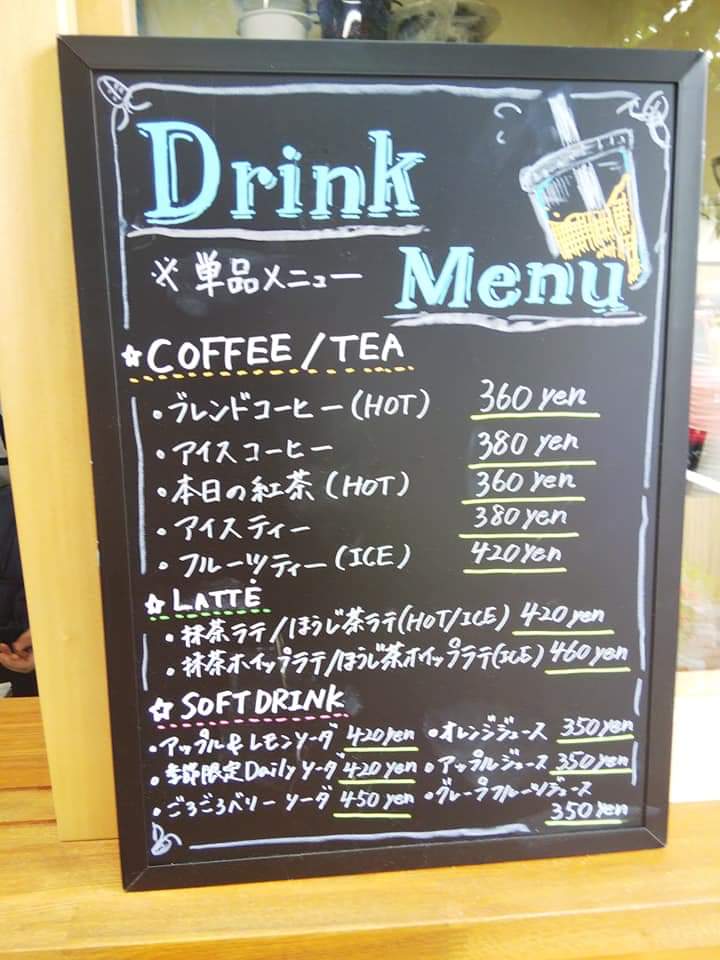 Drink
Menu
※単品メニュー
☆COFFEE/TEA
・ブレンドコーヒー(HOT) 360yen
・アイスコーヒー 380yen
・本日の紅茶(HOT) 360yen
・アイスティー 380yen
・フルーツティー(ICE) 420yen
☆LATTE
・抹茶ラテ/ほうじ茶ラテ(HOT/ICE) 420yen
・抹茶ホイップラテ/ほうじ茶ホイップラテ(ICE) 460yen
☆SOFTDRINK
・アップル&レモンソーダ 420yen
・季節限定Dailyソーダ 420yen
・ごろごろベリーソーダ 450yen
・オレンジジュース 350yen
・アップルジュース 350yen
・グレープフルーツジュース
350yen